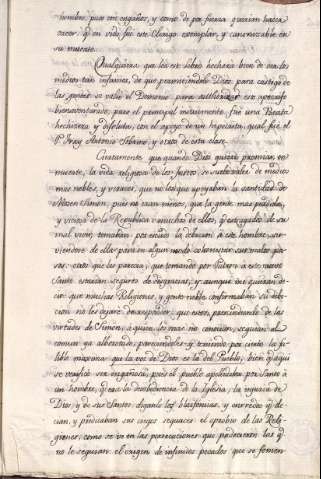 hombre, pues con engaños, y como de por fuerza querian hacer
creer, q. en vida fue este Clerigo exemplar, y canonizarle en
su muerte.
Qualquiera que lea este libro hechará bien de ver los
medios tan infames, de que permitiendolo Dios para castigo de
las gentes se valio el Demonio para este apocrifo
bienaventurado, pues el principal instrumento fue una Beata
hechicera y disoluta, con el apoyo de un tal qual fué el
P. Fray Antonio y otros de esta clase.
Ciertamente que quando Dios quiere promover, en
muerte, la vida religiosa de los justos, se suele valer de medios
mas nobles, y veraces, que no los que apoyaban la santidad de
Mosen Simon, pues no eran menos, que la gente mas perdida,
y viciosa de la Republica: muchas de ellos, q. estragados de su
mal vivir, tomaban por escudo la devocion á este hombre, sir-
viendose de ella para en algun modo cohonestar sus malos
pasos: otros que les parecia, que tomando por Patron á este nuevo
santo estarian seguros de desgracias, y aunque me quieran de-
cir que muchas Religiones, y gente noble confirmaban su devo-
cion no les dejaré de responder, que estos, prescindiendo de las
virtudes de Simon, á quien los mas no conocian, seguian al
comun ya alborotado, pareciendoles y teniendo por cierta la fa-
lible maxima que la voz de Dios es la del Pueblo, bien q. aqui
se verificó ser engañosa, pues el pueblo aplaudia por santo á
un hombre, q. era la desobediencia de la Iglesia, la injuria de
Dios, y de sus santos, diganlo las blasfemias, y enredos q. de-
cian, y predicaban sus ciegos sequaces: el oprobio de las Reli-
giones, como se ve en las persecuciones que padecieron las q.
no le seguian: el origen de infinitos pecados que se fomen